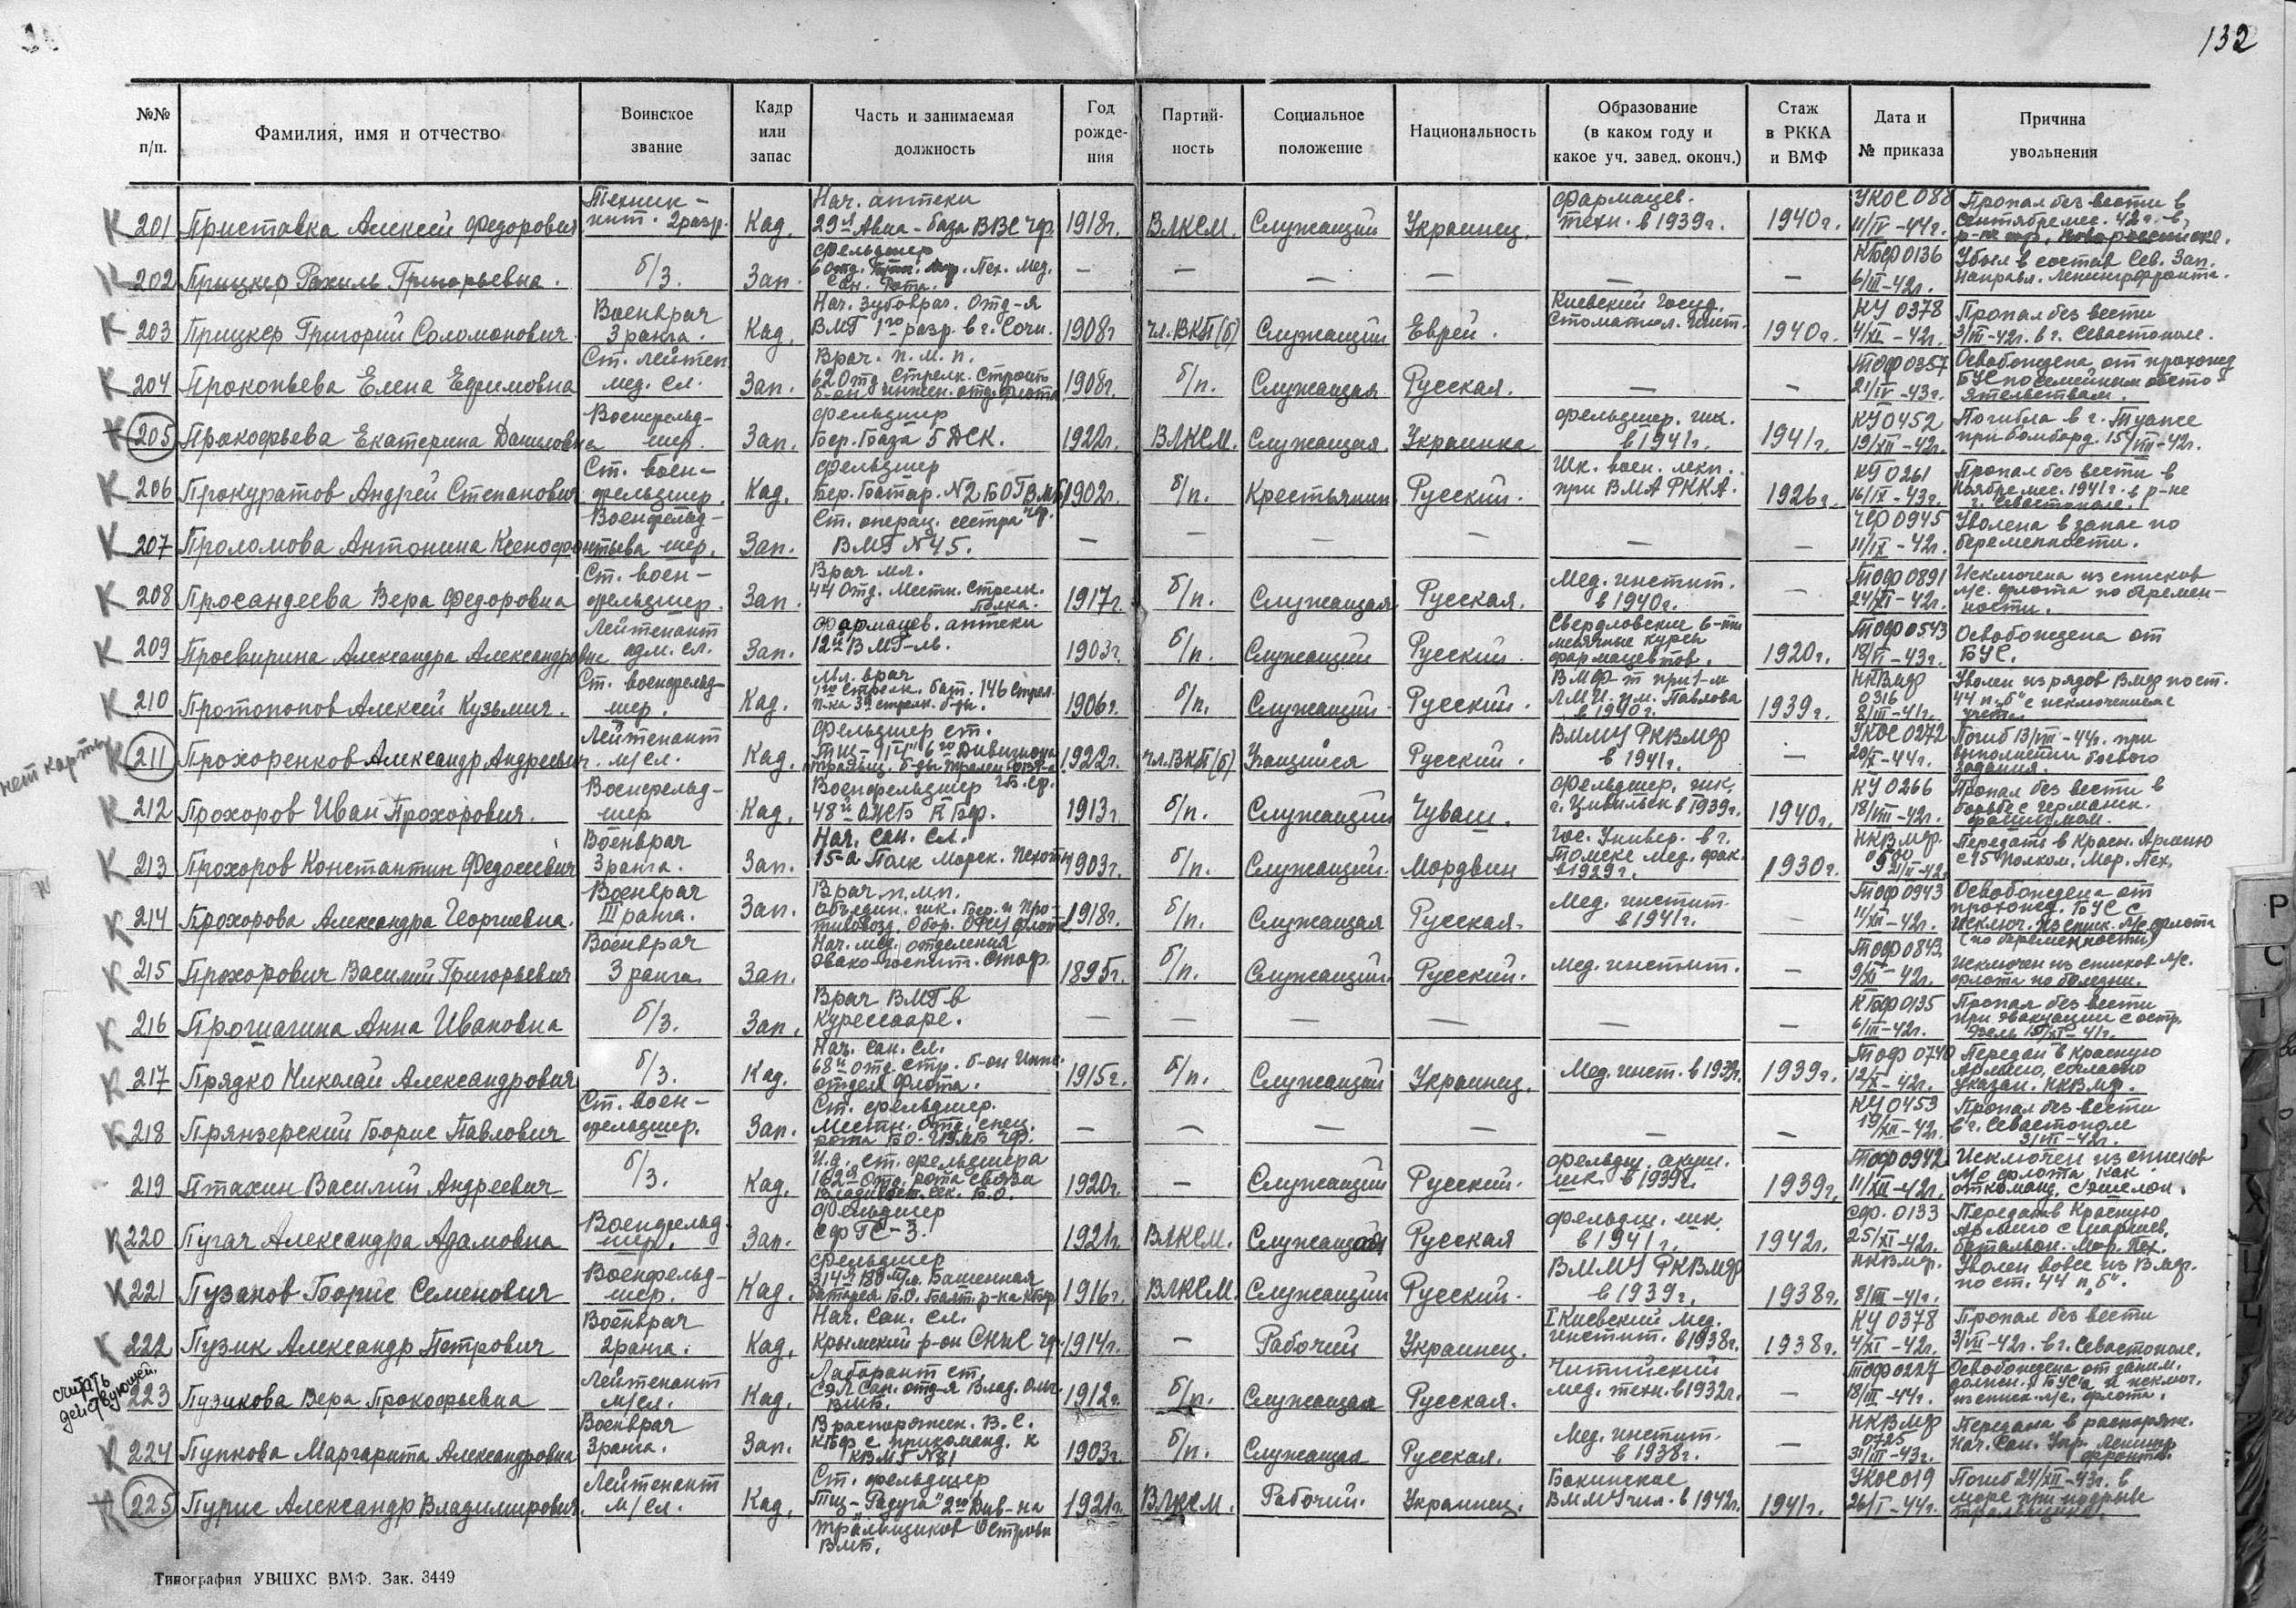 132
№№ п/п. Фамилия, имя и отчество Воинское звание Кадр или запас Часть и занимаемая должность Год рождения Партийность Социальное положение Национальность Образование (в каком году и какое уч. завед. оконч.) Стаж в РККА и ВМФ Дата и № приказа Причина увольнения
К 201 Приставка Алексей Федорович Техник-инт. 2 разр. Кад. Нач. аптеки 29й Авиа-база ВВС ЧФ. 1918г. ВЛКСМ. Служащий Украинец. Фармацев. техн. в 1939г. 1940г. УКОС 088 11/IV-44г. Пропал без вести в сентябре мес. 42г. в р-не гор. Новороссийске.
К 202 Прицкер Рахиль Григорьевна. б/з. Зап. Фельдшер 6 отд. Пех. Мед. Сан. Рота. — — — — — — КБФ 0136 6/III-42г. Убыл в состав Сев. Зап. направл. Ленингр. фронта.
К 203 Прицкер Григорий Соломонович. Военврач 3 ранга. Кад. Нач. зубоврач. отд-я ВМГ 1го разр. в г. Сочи. 1908г чл. ВКП(б) Служащий Еврей. Киевский госуд. стоматол. инст. 1940г. КУ 0378 4/XI-42г. Пропал без вести 3/VII-42г. в г. Севастополе.
К 204 Прокопьева Елена Ефимовна Ст. лейтен. мед. сл. Зап. Врач. п. м. п. 62 отд. Стрелк. Строит. б-он инжен. отд. флота 1908г. б/п. Служащая Русская. — — ТОФ 0357 21/IV-43г. Освобождена от прохожд БУС по семейным обстоятельствам.
К 205 Прокофьева Екатерина Даниловна Военфельдшер. Зап. Фельдшер Бер. База 5 ДСК. 1922г. ВЛКСМ. Служащая. Украинка Фельдшер. шк. в 1941г. 1941г. КУ 0452 19/XII-42г. Погибла в г. Туапсе при бомбард. 15/VII-42г.
К 206 Прокуратов Андрей Степанович Ст. военфельдшер. Кад. Фельдшер Бер. Батар. №2 БО ГВМБ ЧФ. 1902г. б/п. Крестьянин Русский. Шк. воен. лекп. при ВМА РККА. 1926г. КУ 0261 16/IX-43г. Пропал без вести в ноябре мес. 1941г. в р-не г. Севастополе.
К 207 Проломова Антонина Ксенофонтьева Военфельдшер. Зап. Ст. операц. сестра ВМГ №45. — — — — — — ЧФ 0945 11/IX-42г. Уволена в запас по беременности.
К 208 Просандеева Вера Федоровна Ст. военфельдшер. Зап. Врач мл. 44 отд. Местн. стрелк. полка. 1917г б/п. Служащая Русская. Мед. институт. в 1940г. — ТОФ 0891 24/XI-42г. Исключена из списков л/с. флота по беременности.
К 209 Просвирина Александра Александровне Лейтенант адм. сл. Зап. Фармацев. аптеки 12й ВМГ-ль. 1903г. б/п. Служащий Русский. Свердловские 6-ти месячные курсы фармацевтов. 1920г. ТОФ 0543 18/VI-43г. Освобождена от БУС.
К 210 Протопопов Алексей Кузьмич. Ст. военфельдшер. Кад. Мл. врач 1го Стрелк. бат. 146 Стрел. п-ка 39 стрелк. б-ды. 1906г. б/п. Служащий. Русский. ВМФ-т при 1-м Л.М.И. им. Павлова в 1940г. 1939г. НКВМФ 0316 8/III-41г. Уволен из рядов ВМФ по ст. 44 п. "б" с исключением с учета.
нет карты
К 211 Прохоренков Александр Андреевич. Лейтенант м/сл. Кад. Фельдшер ст. 6го Дивизиона 1922г. чл. ВКП(б) Учащийся Русский. ВММУ РКВМФ в 1941г. — УКОС 0272 20/X-44г. Погиб 13/VIII-44г. при выполнении боевого задания.
К 212 Прохоров Иван Прохорович. Военфельдшер Кад. Военфельдшер 48й ОИСБ КБФ. 1913г. б/п. Служащий Чуваш. Фельдшер. шк. г. Цивильск в 1939г. 1940г. КУ 0266 18/VIII-42г. Пропал без вести в борьбе с германск. фашизмом.
К 213 Прохоров Константин Федосеевич Военврач 3 ранга. Зап. Нач. сан. сл. 15-а Полк Морск. Пехоты 1903г. б/п. Служащий. Мордвин Гос. Универ. в г. Томске мед. фак. в 1929г. 1930г. НКВМФ. Передан в Красн. Армию с 15 Полком. Мор. Пех.
К 214 Прохорова Александра Георгиевна. Военврач III ранга. Зап. Врач п.м.п. Объедин. шк. Бер. и Противовозд. Обор. 1918г. б/п. Служащая Русская. Мед. институт в 1941г. — ТОФ 0943 11/XII-42г. Освобождена от прохожд. БУС с исключ. из спис. л/с флота (по беременности)
К 215 Прохорович Василий Григорьевич Военврач 3 ранга Зап. Нач. мед. отделения Эвако-госпит. СТОФ. 1895г. б/п. Служащий. Русский. Мед. институт. — ТОФ 0843 9/XI-42г. Исключен из списков л/с. флота по болезни.
К 216 Прошагина Анна Ивановна б/з. Зап. Врач ВМГ в Курессааре. — — — — — — КБФ 0135 6/III-42г. Пропал без вести при эвакуации с остр. Эзель 41г.
К 217 Прядко Николай Александрович б/з. Кад. Нач. Сан. сл. 68й отд. стр. б-он Инже. отдел Флота. 1915г. б/п. Служащий Украинец. Мед. инст. в 1939г. 1939г. ТОФ 0740 12/X-42г. Передан в Красную Армию, согласно указан. НКВМФ.
К 218 Прянзерский Борис Павлович Ст. военфельдшер. Зап. Ст. фельдшер. Местн. отд. спец. рота БО. ЧФ. — — — — — — КУ 0453 19/XII-42г. Пропал без вести в г. Севастополе 3/VII-42г.
219 Птахин Василий Андреевич б/з. Кад. И.д. ст. фельдшера 162й Отд. рота связи Владивост. сек. Б.О. 1920г. — Служащий Русский. Фельдш. акуш. шк. в 1939г. 1939г. ТОФ 0942 11/XII-42г. Исключен из списков л/с флота как откоманд. с эшелон.
К 220 Пугач Александра Адамовна Военфельдшер. Зап. Фельдшер СФ ГС-3. 1921г. ВЛКСМ. Служащая Русская Фельдш. шк. в 1941г. 1942г. СФ. 0133 25/XI-42г. Передан в Красную Армию с маршев. батальон. Мор. Пех.
К 221 Пузаков Борис Семенович Военфельдшер. Кад. Фельдшер 314й 180 м/м. Башенная батарея Б.О. Балт. р-на КБФ 1916г. ВЛКСМ. Служащий Русский. ВММУ РКВМФ в 1939г. 1938г. НКВМФ. 8/III-41г. Уволен вовсе из ВМФ. по ст. 44 п. "б".
К 222 Пузик Александр Петрович Военврач 2 ранга. Кад. Нач. Сан. сл. Крымский р-он СНиС ЧФ 1914г. — Рабочий Украинец. I Киевский мед. институт. в 1938г. 1938г. КУ 0378 4/XI-42г. Пропал без вести 3/VII-42г. в г. Севастополе.
считать действующей
223 Пузикова Вера Прокофьевна Лейтенант м/сл. Кад. Лаборант ст. СЭЛ Сан. отд-я Влад. Ольг. ВМБ. 1912г. б/п. Служащая Русская. Читинский мед. техн. в 1932г. — ТОФ 0227 18/III-44г. Освобождена от заним. должн., БУС'а и исключ. из спис. л/с. флота.
К 224 Пупкова Маргарита Александровна Военврач 3 ранга. Зап. В распоряжен. В.С. КБФ с прикоманд. к 1 КВМГ №81 1903г. б/п. Служащая Русская. Мед. институт. в 1938г. — НКВМФ 0725 31/III-43г. Передана в распоряж. Нач. Сан. Упр. Ленингр фронта.
К 225 Пурис Александр Владимирович. Лейтенант м/сл. Кад. Ст. фельдшер Тщ-"Радуга" 2го Див-на тральщиков Островн ВМБ. 1921г. ВЛКСМ. Рабочий. Украинец. Бакинское ВММУчил. в 1942г. 1941г. УКОС 019 26/I-44г. Погиб 24/XII-43г. в море при подрыве тральщика.
Типография УВШХС ВМФ. Зак. 3449
Р
С